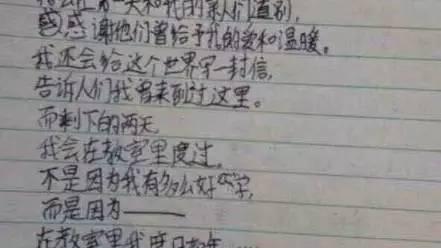 指会在第一天和我的亲人们道别,
感谢他们曾给予我的爱和温暖。
我还会给这个世界写一封信,
告诉人们我曾来到过这里。
而剩下的两天,
我会在教室里度过,
不是因为我有多么好学,
而是因为———
在教室里我度日如年……